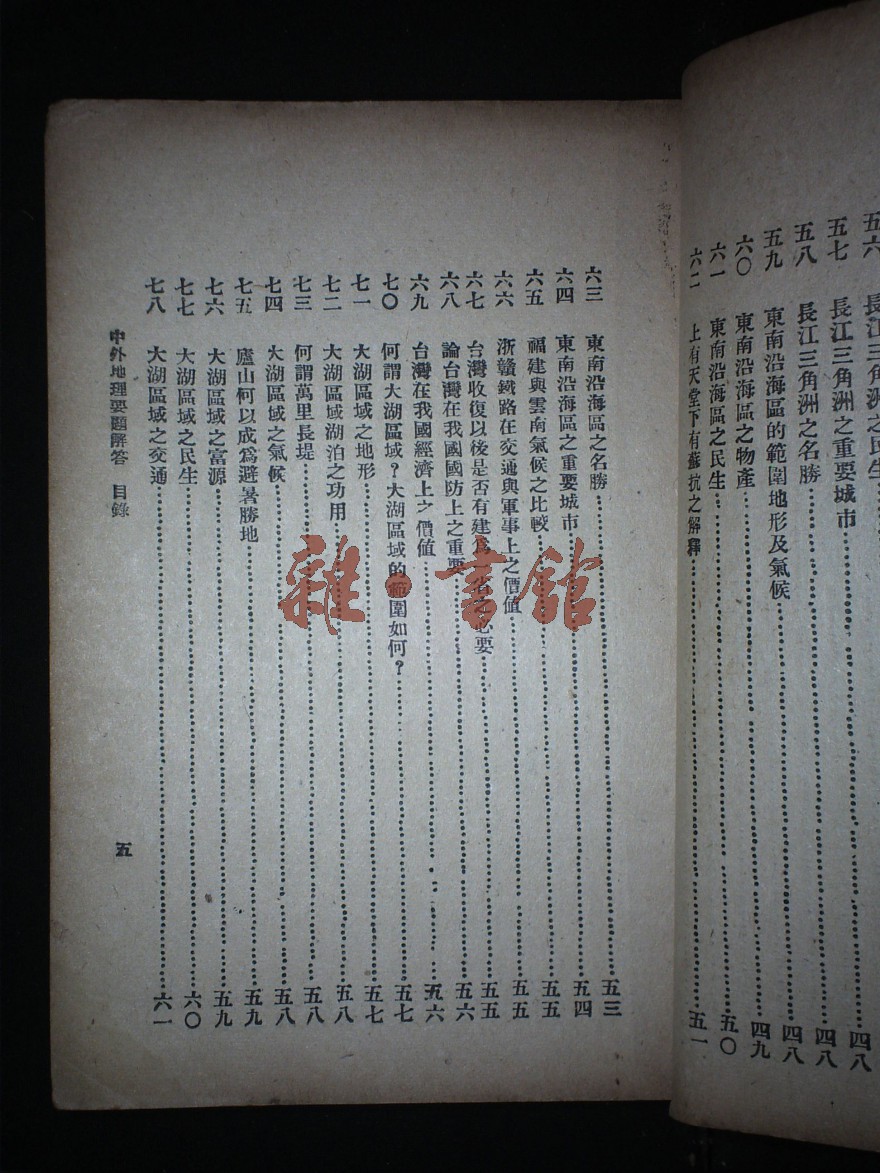 長江三角洲之民生 四八
五七 長江三角洲之重要城市 四八
五八 長江三角洲之名勝 四八
五九 東南沿海區的範圍地形及氣候 四九
六〇 東南沿海區之物產 五〇
六一 東南沿海區之民生
六二 上有天堂下有蘇杭之解釋 五一
六三 東南沿海區之名勝 五三
六四 東南沿海區之重要城市 五四
六五 福建與雲南氣候之比較 五五
六六 浙贛鐵路在交通與軍事上之價值 五五
六七 台灣收復以後是否有建為一省之必要 五五
六八 論台灣在我國國防上之重要 五六
六九 台灣在我國經濟上之價值 五六
七〇 何謂大湖區域？大湖區域的範圍如何？ 五七
七一 大湖區域之地形 五七
七二 大湖區域湖泊之功用 五八
七三 何謂萬里長堤 五八
七四 大湖區域之氣候 五八
七五 廬山何以成為避暑勝地 五九
七六 大湖區域之富源 五九
七七 大湖區域之民生 六〇
七八 大湖區域之交通 六一
中外地理要題解答 目錄 五
雜·書館